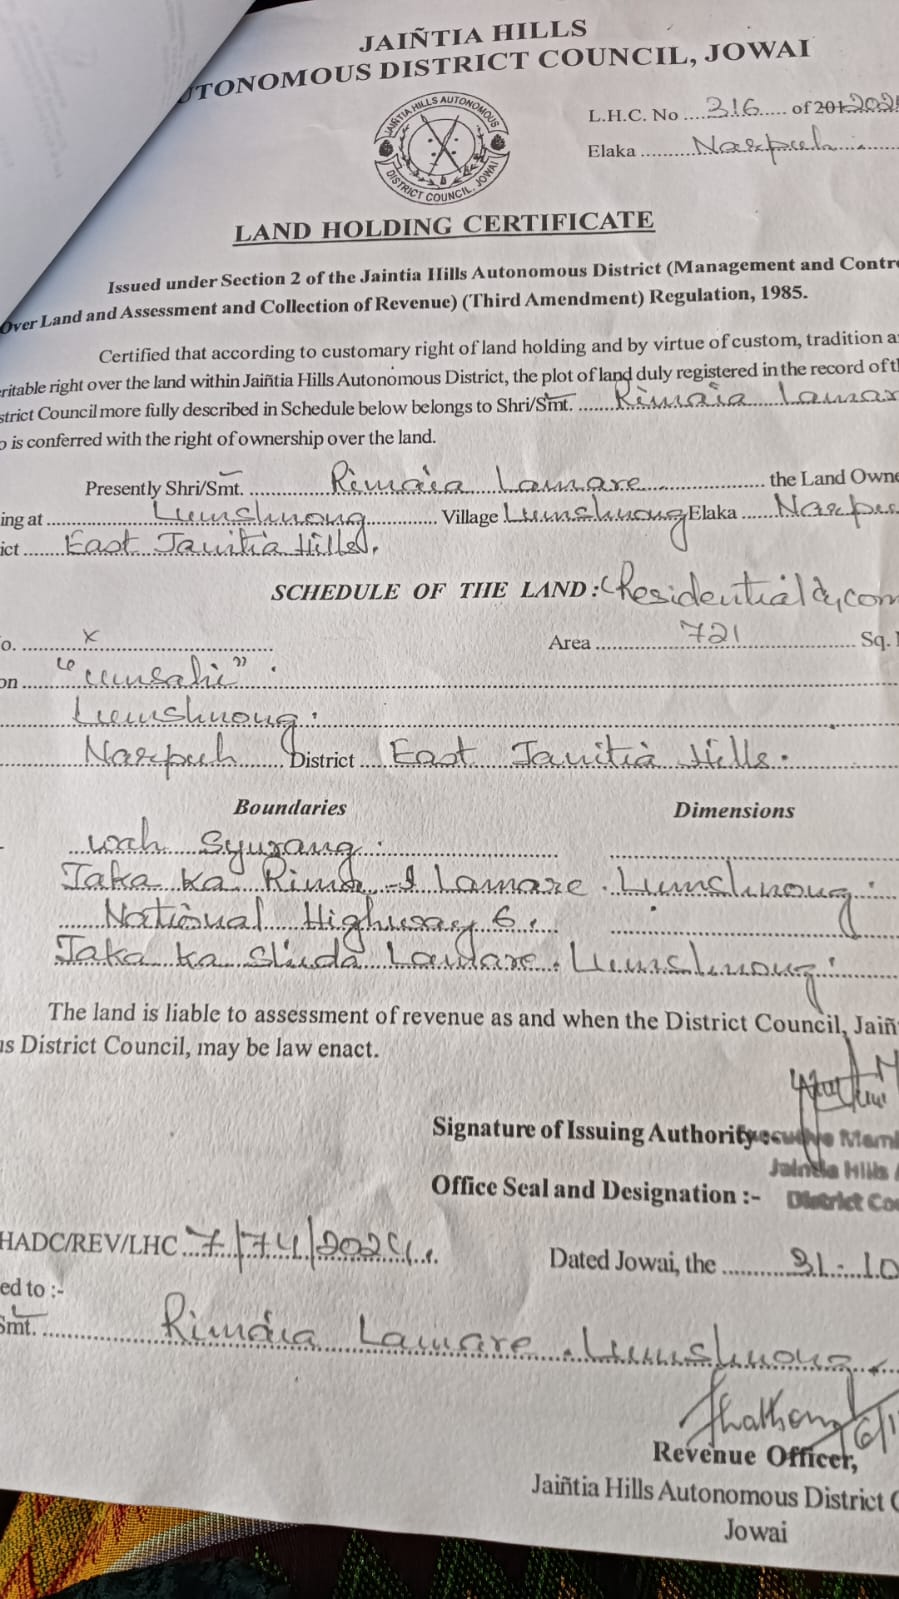 JAIÑTIA HILLS
UTONOMOUS DISTRICT COUNCIL, JOWAI
JAIÑTIA HILLS AUTONOMOUS
DISTRICT COUNCIL, JOWAI
L.H.C. No ....316..... of 201 202
Elaka .........Narpuh.........
LAND HOLDING CERTIFICATE
Issued under Section 2 of the Jaintia Hills Autonomous District (Management and Contr
Over Land and Assessment and Collection of Revenue) (Third Amendment) Regulation, 1985.
Certified that according to customary right of land holding and by virtue of custom, tradition a
eritable right over the land within Jaiñtia Hills Autonomous District, the plot of land duly registered in the record of t
strict Council more fully described in Schedule below belongs to Shri/Smt. .......Rimaia Lamar
o is conferred with the right of ownership over the land.
Presently Shri/Smt. ............Rimaia Lamare.............. the Land Owne
ing at ...............Lumshnong............ Village Lumshnong Elaka .....Narpu
ict .......East Jaintia Hills.
SCHEDULE OF THE LAND : Residential & com
o. ........x........................
Area ..............721.................... Sq.
on ....."umsahi".
Lumshnong.
Narpuh District ....East Jaintia Hills.
Boundaries
Dimensions
wah Syurang.
Jaka ka Rima Lamare. Lumshnong.
National Highway 6.
Jaka ka Lamare. Lumshnong.
The land is liable to assessment of revenue as and when the District Council, Jaiñ
us District Council, may be law enact.
Signature of Issuing Authority
ecutive Mem
Jaintia Hills A
Office Seal and Designation :-
District Co
HADC/REV/LHC 7/74/202
Dated Jowai, the ..........31-10
ed to :-
Smt. ................Rimaia Lamare. Lumshnong.
Revenue Officer,
Jaiñtia Hills Autonomous District
Jowai